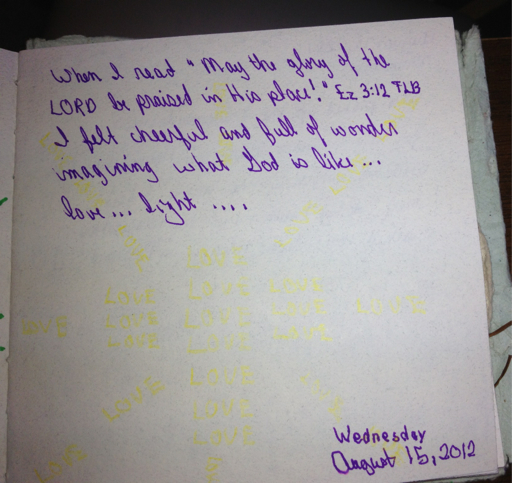 When I read "May the glory of the
LORD be praised in His place!" Ez 3:12 TLB
I felt cheerful and full of wonder
imagining what God is like...
love... light ....
LOVE
LOVE
LOVE
LOVE
LOVE LOVE LOVE
LOVE LOVE LOVE LOVE LOVE
LOVE LOVE LOVE
LOVE
LOVE LOVE
LOVE
LOVE
LOVE
Wednesday
August 15, 2012